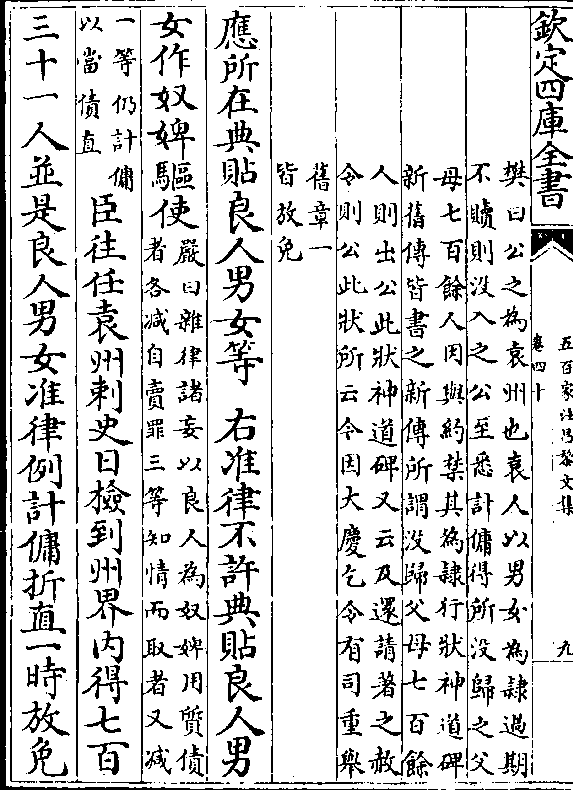 欽定四庫全書
五百家注昌黎文集
卷四十
九
樊曰公之為袁州也袁人以男女為隸過期
不贖則沒入之公至悉計傭得所沒歸之父
母七百餘人因與約禁其為隸行狀神道碑
新舊傳皆書之新傳所謂沒歸父母七百餘
人則出公此狀神道碑又云及還請著之赦
令則公此狀所云令因大慶乞令有司重舉
舊章一
皆放免
應所在典貼良人男女等 右准律不許典貼良人男
女作奴婢驅使
嚴曰雜律諸妄以良人為奴婢用質債
者各減自賣罪三等知情而取者又減
一等仍計傭
以當債直
臣往任袁州刺史日檢到州界内得七百
三十一人並是良人男女准律例計傭折直一時放免